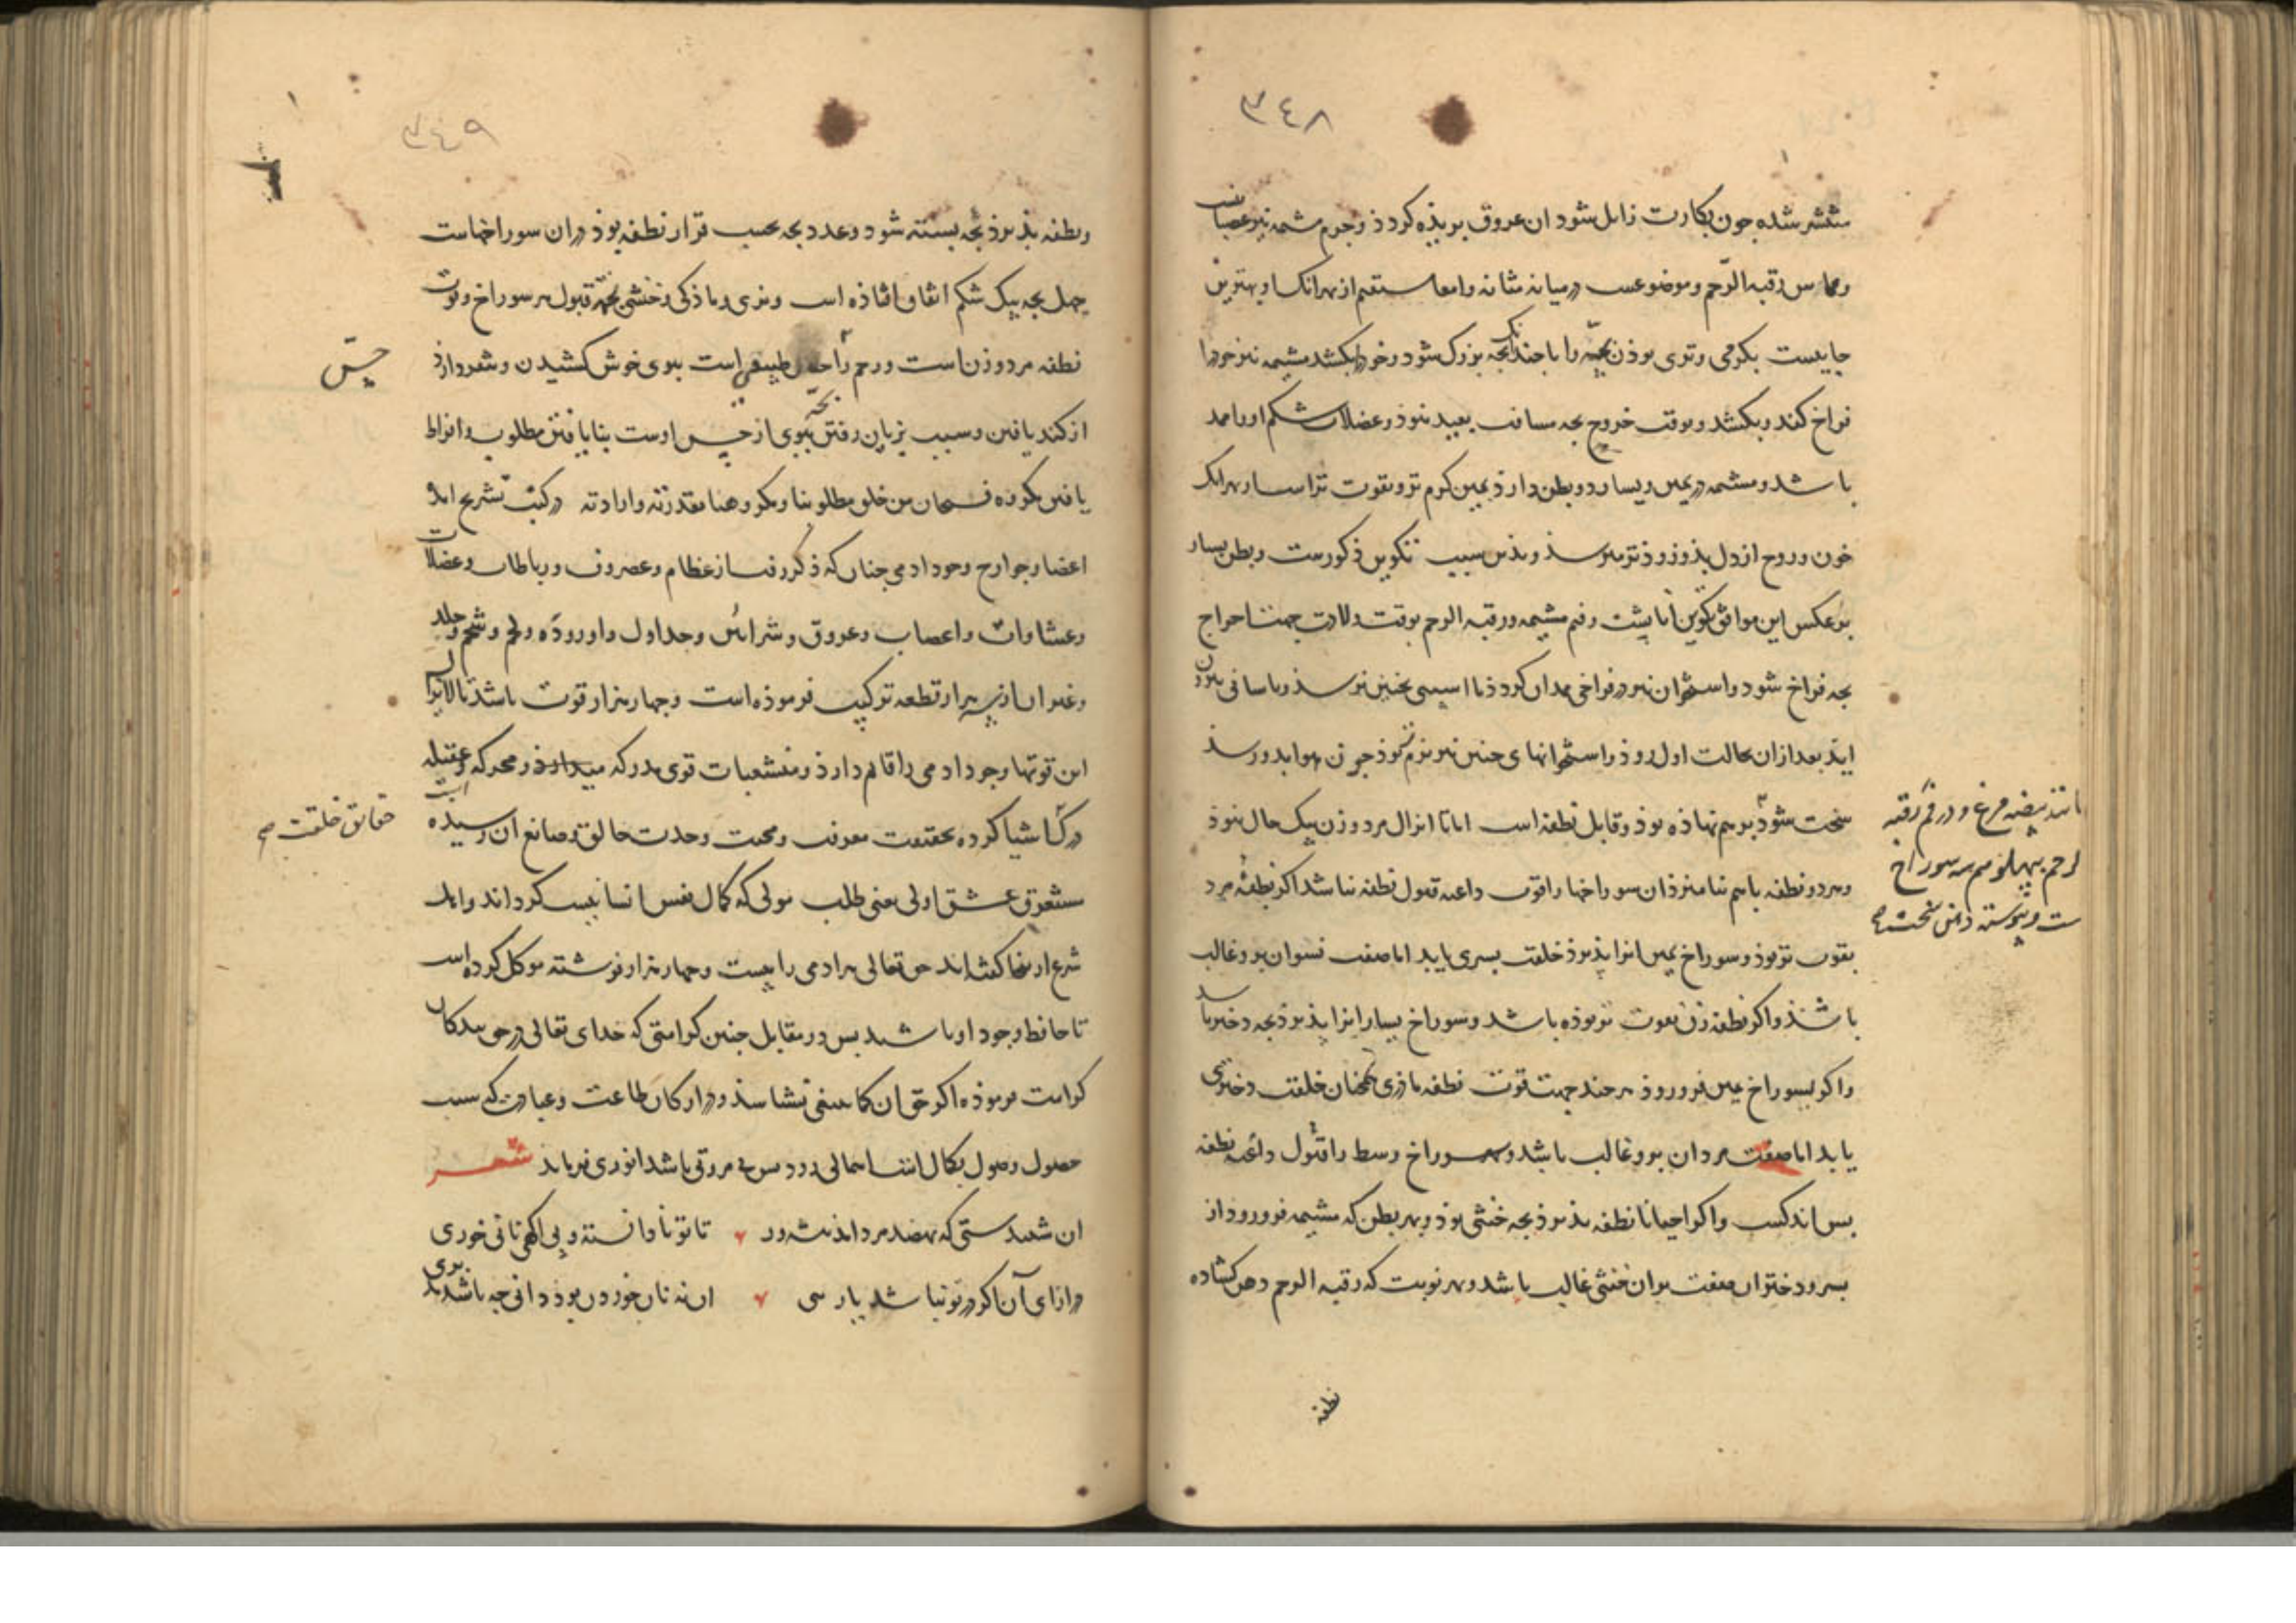 ٣٤٨
منتشر شده جون بکارت زایل شود ان عروق بریذه کردذ و جرم مشیمه نیز عصبانیست
و مماس رقبه الرحم و موضوعست در میانه مثانه و امعا مستقیم از بهر انک او بهترین
جاییست بکرمی و تری بوذن بچه را با جندانک بجه بزرک شود و خود را بکشد مشیمه نیز خود را
فراخ کند و بکشد و بوقت خروج بجه مسافت بعید نبوذ و عضلات شکم او را ممد
باشد و مشیمه در یمین و یسار دو بطن دارد یمین کرم تر و بقوت تر است از بهر انک
خون و روح از دل بذو زوذتر میرسذ و بذین سبب تکوین ذکورست و بطن یسار
بر عکس این موافق تکوین اناثیست و فم مشیمه و رقبه الرحم بوقت ولادت جهت اخراج
بجه فراخ شود و استخوان نیز در فراخی ممدان کردد تا اسیبی بجنین نرسذ و باسانی بیرون
اید بعد ازان بحالت اول روذ و استخوانهای جنین نیز نرم بوذ جون هوا بدو رسذ
سخت شود بر هم نهاذه بوذ و قابل نطفه است اما تا انزال مرد و زن بیک حال نبوذ
و هر دو نطفه باهم نیامیزد ان سوراخها را قوت داعیه قبول نطفه نباشد اکر نطفه مرد
بقوت تر بوذ و سوراخ یمین انرا پذیرذ خلقت پسری یابد اما صفت نسوان برو غالب
باشذ و اکر نطفه زن بقوت تر بوذه باشد و سوراخ یسار انرا پذیرذ بجه دختر باشد
و اکر بسوراخ یمین فرو روذ هر جند جهت قوت نطفه ماذری همجنان خلقت دختری
یابد اما صفت مردان برو غالب باشد و سوراخ وسط را قبول داعیه نطفه
بس اندکست و اکر احیانا نطفه پذیرذ بجه خنثی بوذ و بهر بطن که مشیمه فرو رود از
پسر و دختر ان صفت بران خنثی غالب باشد و بهر نوبت که رقبه الرحم دهن کشاده
مانند بیضه مرغ و در فم رقبه
الرحم بپهلو هم سه سوراخ
است و پیوسته دهن
نطفه
٣٤٩
و نطفه پذیرذ بجه بسته شود و عدد بجه بحسب قرار نطفه بوذ دران سوراخهاست
جهل بجه بیک شکم اتفاق افتاذه است و نری و ماذکی و خنثی بجهة قبول هر سوراخ و قوت
نطفه مرد و زن است و رحم را طبیعی است ببوی خوش کشیدن و شعور دارذ
از کند یافتن و سبب بزیان رفتن بچه ببوی از حس اوست بنایافتن مطلوب و افراط
یافتن مکروه فسبحان من خلق مطلوبنا و مکروهنا بقدرته و ارادته در کتب تشریح اند
اعضا و جوارح وجود ادمی جنان که ذکر رفت از عظام و غضروف و رباطات و عضلات
و غشاوات و اعصاب و عروق و شرائین و جداول و اورده و لحم و شحم و جلد
و غیر ان از سه هزار قطعه ترکیب فرموذه است و جهار هزار قوت باشد تا لابرا
این قوتها وجود ادمی را قایم دارذ و منشعبات قوی مدرکه و محرکه و عقیله
در کاشیا کرده بحقیقت معرفت و محبت وحدت خالق و صانع ان رسیده است
مستغرق عشق اولی یعنی طلب مولی که کمال نفس انسانیست کرداند و اهل
شرع از ینجا کفته‌اند حق تعالی بر ادمی را بیست و جهار هزار فرشته موکل کرده است
تا حافظ وجود او باشند بس در مقابل جنین کرامتی که خدای تعالی در حق بندکان
کرامت فرموذه اکر حق ان کما ینبغی نشناسذ و در ارکان طاعت و عبادت که سبب
حصول وصول بکمال انسانست اهمالی رود بس بی مروتی باشد انوری فرماید شعر
ان شنیدستی که نهصد مرد باید پیشه ور تا تو نادانسته و بی اکهی نانی خوری
در ازای آن اکر در تو نباشد یارییی ان نه نان خوردن بود دانی جه باشد مدبری
حس
حقایق خلقت صح